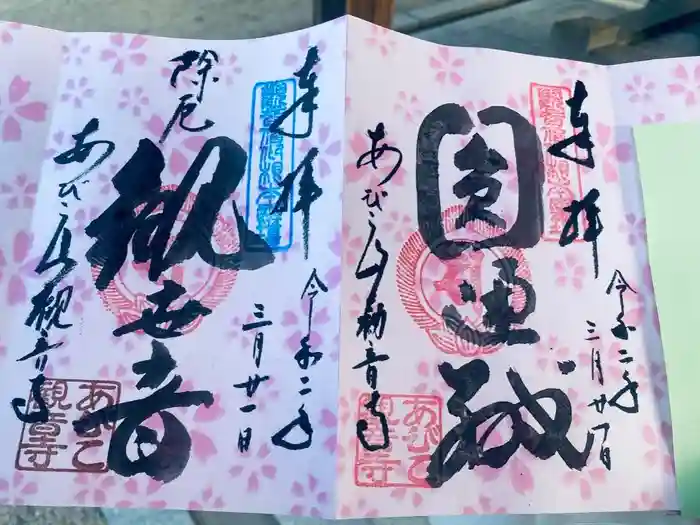 奉拝
令和二年
三月廿一日
圓通殿
あびこ山観音寺
あびこ
観音寺
奉拝
令和二年
三月廿一日
除厄
観世音
あびこ山観音寺
あびこ
観音寺